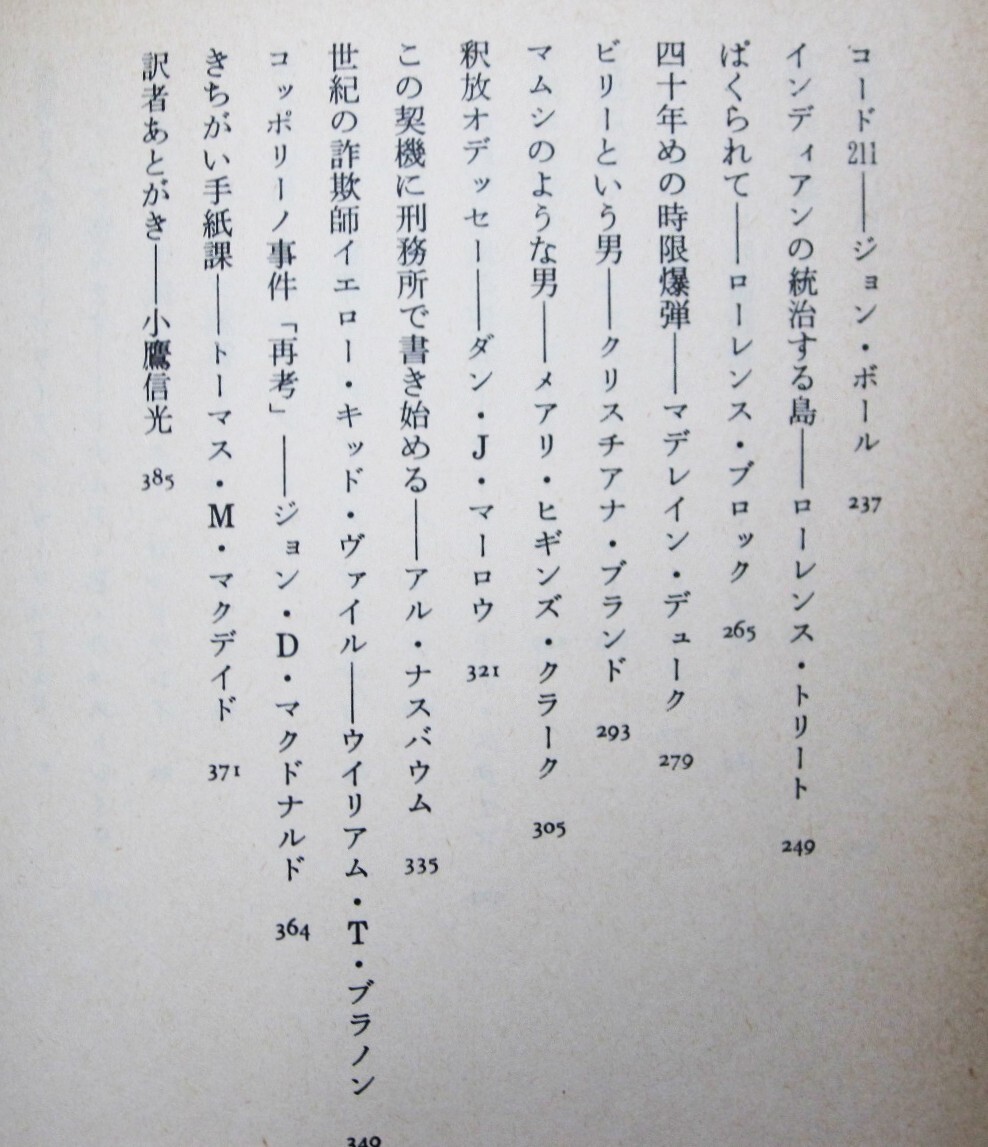 コード211――ジョン・ボール 237
インディアンの統治する島――ローレンス・トリート 249
ぱくられて――ローレンス・ブロック 265
四十年めの時限爆弾――マデレイン・デューク 279
ビリーという男――クリスチアナ・ブランド 293
マムシのような男――メアリ・ヒギンズ・クラーク 305
釈放オデッセー――ダン・J・マーロウ 321
この契機に刑務所で書き始める――アル・ナスバウム 335
世紀の詐欺師イエロー・キッド・ヴァイル――ウイリアム・T・ブラノン 349
コッポリーノ事件「再考」――ジョン・D・マクドナルド 364
きちがい手紙課――トーマス・M・マクデイド 371
訳者あとがき――小鷹信光 385